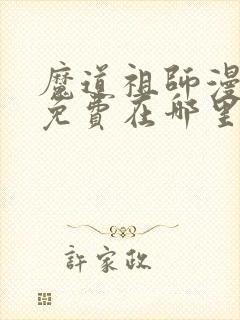 魔道祖師漫
免費在哪里
許家政